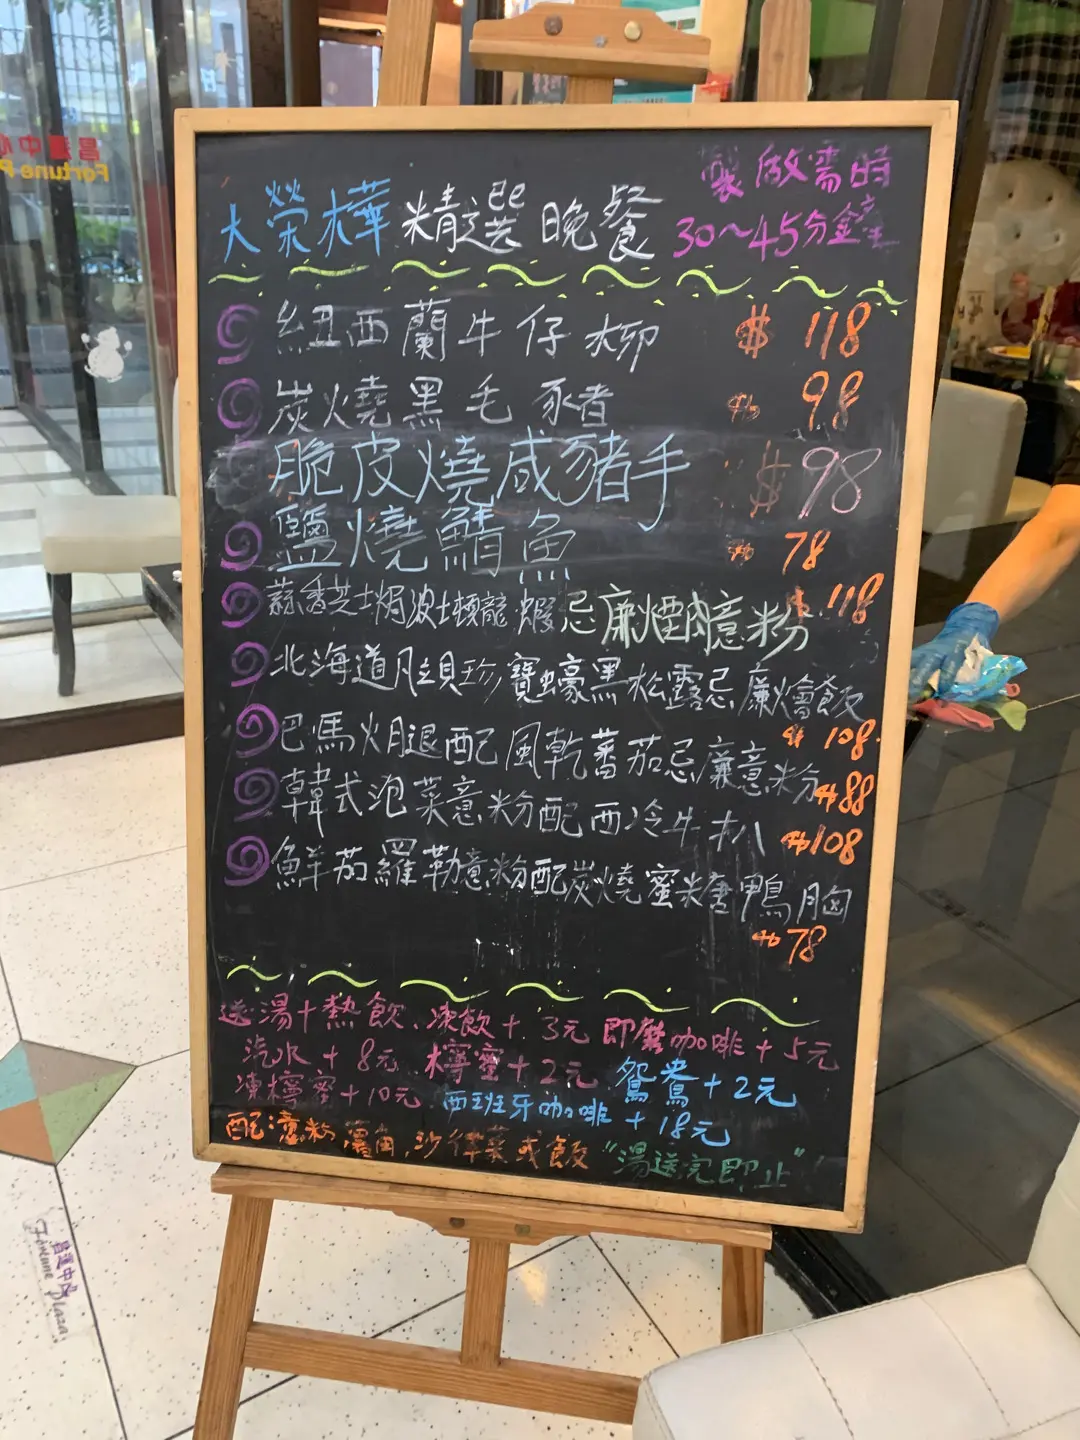 昌運中心
Fortune P
製做需時
大榮樺 精選 晚餐 30~45分鐘
紐西蘭牛仔柳 $118
炭燒黑毛豬 $98
脆皮燒咸豬手 $98
鹽燒鯖魚 $78
蒜香芝士焗波士頓龍蝦忌廉煙肉意粉 $118
北海道帶子珍寶蠔黑松露忌廉燴飯
$108
巴馬火腿配風乾蕃茄忌廉意粉 $88
韓式泡菜意粉配西冷牛扒 $108
鮮茄羅勒意粉配炭燒蜜糖鴨胸
$78
送湯+熱飲、凍飲+3元 即磨咖啡+5元
汽水+8元、檸蜜+2元 鴛鴦+2元
凍檸蜜+10元 西班牙咖啡+18元
配意粉、薯角、沙律菜或飯 "湯送完即止"
昌運中心
Fortune Plaza